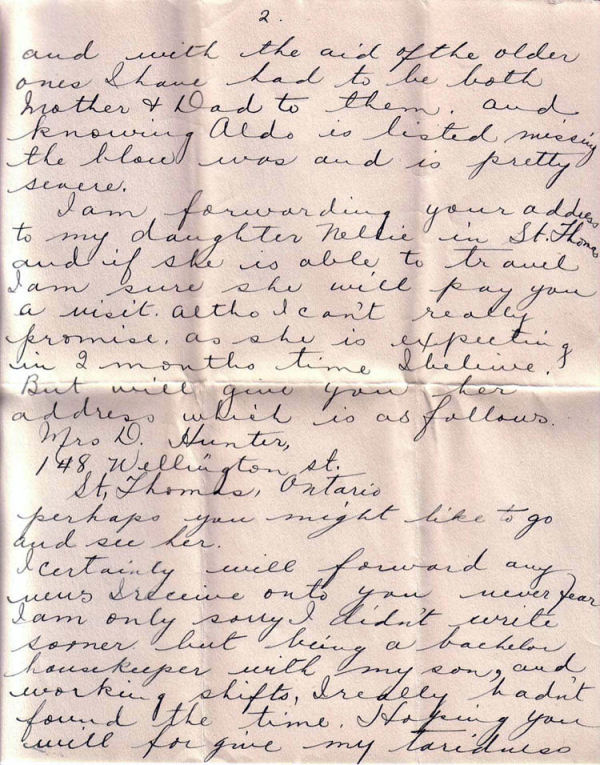 2.
and with the aid of the older
ones I have had to be both
Mother & Dad to them. and
knowing Aldo is listed missing
the blow was and is pretty
severe.
I am forwarding your address
to my daughter Nellie in St. Thomas
and if she is able to travel
I am sure she will pay you
a visit. altho I can't really
promise. as she is expecting
in 2 months time I believe.
But will give you her
address which is as follows.
Mrs D. Hunter,
148 Wellington st.
St, Thomas, Ontario
perhaps you might like to go
and see her.
I certainly will forward any
news I receive onto you never fear
I am only sorry I didn't write
sooner. but being a bachelor
housekeeper with my son, and
working shifts, I really hadn't
found the time. Hoping you
will forgive my taridness